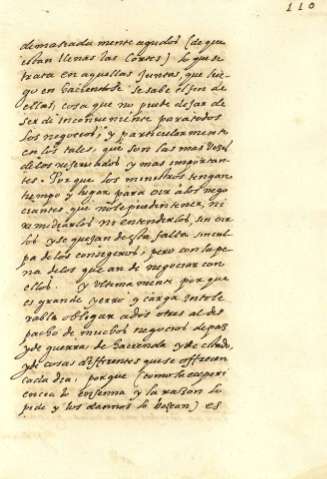 110
demasiadamente agudos (de que
estan llenas las Cortes) lo que se
trata en aquellas Juntas, que lue-
go en haciendose se sabe el fin de
ellas, cosa que no puede dejar de
ser de inconveniente para todos
los negocios, y particularmente
en los tales, que son las mas vezes
de los reservados y mas importan-
tes. Porque los ministros tengan
tiempo y lugar para oir a los nego
ciantes que no se pueden tener, ni
remediarlos no entenderlos, sin oir
los y se quejan de esta falta sin cul
pa de los consegeros, pero con la pe
na de los que an de negociar con
ellos. y ultimamente porque
es grande yerro y carga intole
rable obligar a dos o tres al des
pacho de muchos negocios de paz
y de guerra, de hacienda y de estado
y de cosas differentes que se offrecen
cada dia, porque (como la experi
encia lo enseña y la razon lo
pide y los daños lo bozean) es